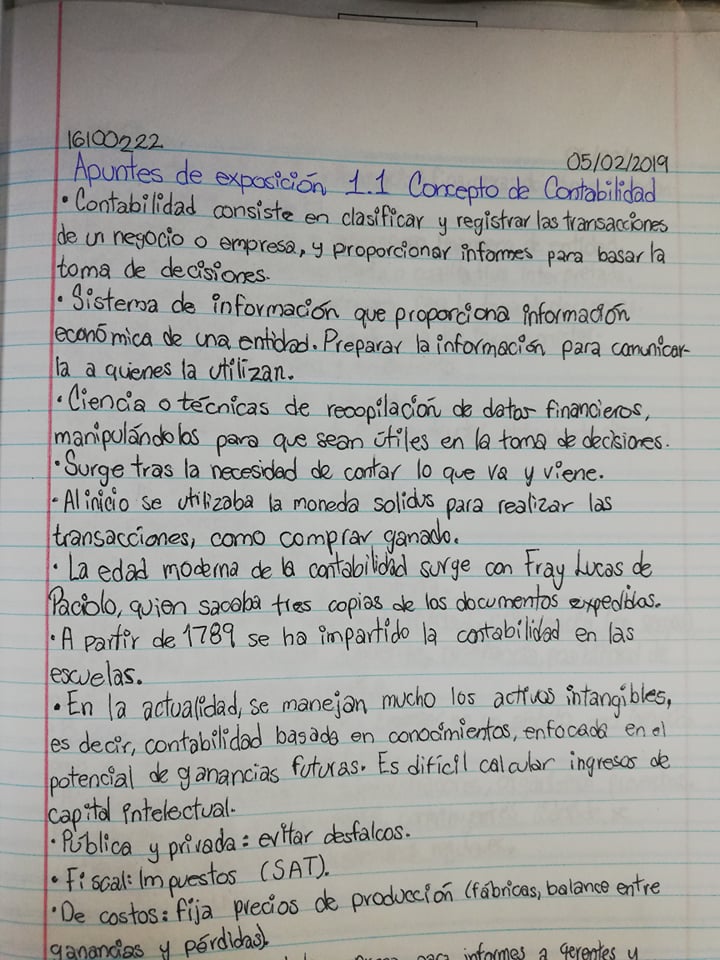 16100222
05/02/2019
Apuntes de exposición 1.1 Concepto de Contabilidad
• Contabilidad consiste en clasificar y registrar las transacciones
de un negocio o empresa, y proporcionar informes para basar la
toma de decisiones.
• Sistema de información que proporciona información
económica de una entidad. Preparar la información para comunicar-
la a quienes la utilizan.
• Ciencia o técnicas de recopilación de datos financieros,
manipulándolos para que sean útiles en la toma de decisiones.
• Surge tras la necesidad de contar lo que va y viene.
• Al inicio se utilizaba la moneda solidus para realizar las
transacciones, como comprar ganado.
• La edad moderna de la contabilidad surge con Fray Lucas de
Paciolo, quien sacaba tres copias de los documentos expedidos.
• A partir de 1789 se ha impartido la contabilidad en las
escuelas.
• En la actualidad, se manejan mucho los activos intangibles,
es decir, contabilidad basada en conocimientos, enfocada en el
potencial de ganancias futuras. Es difícil calcular ingresos de
capital intelectual.
• Pública y privada: evitar desfalcos.
• Fiscal: Impuestos (SAT).
• De costos: fija precios de producción (fábricas, balance entre
ganancias y pérdidas).
para informes a gerentes y